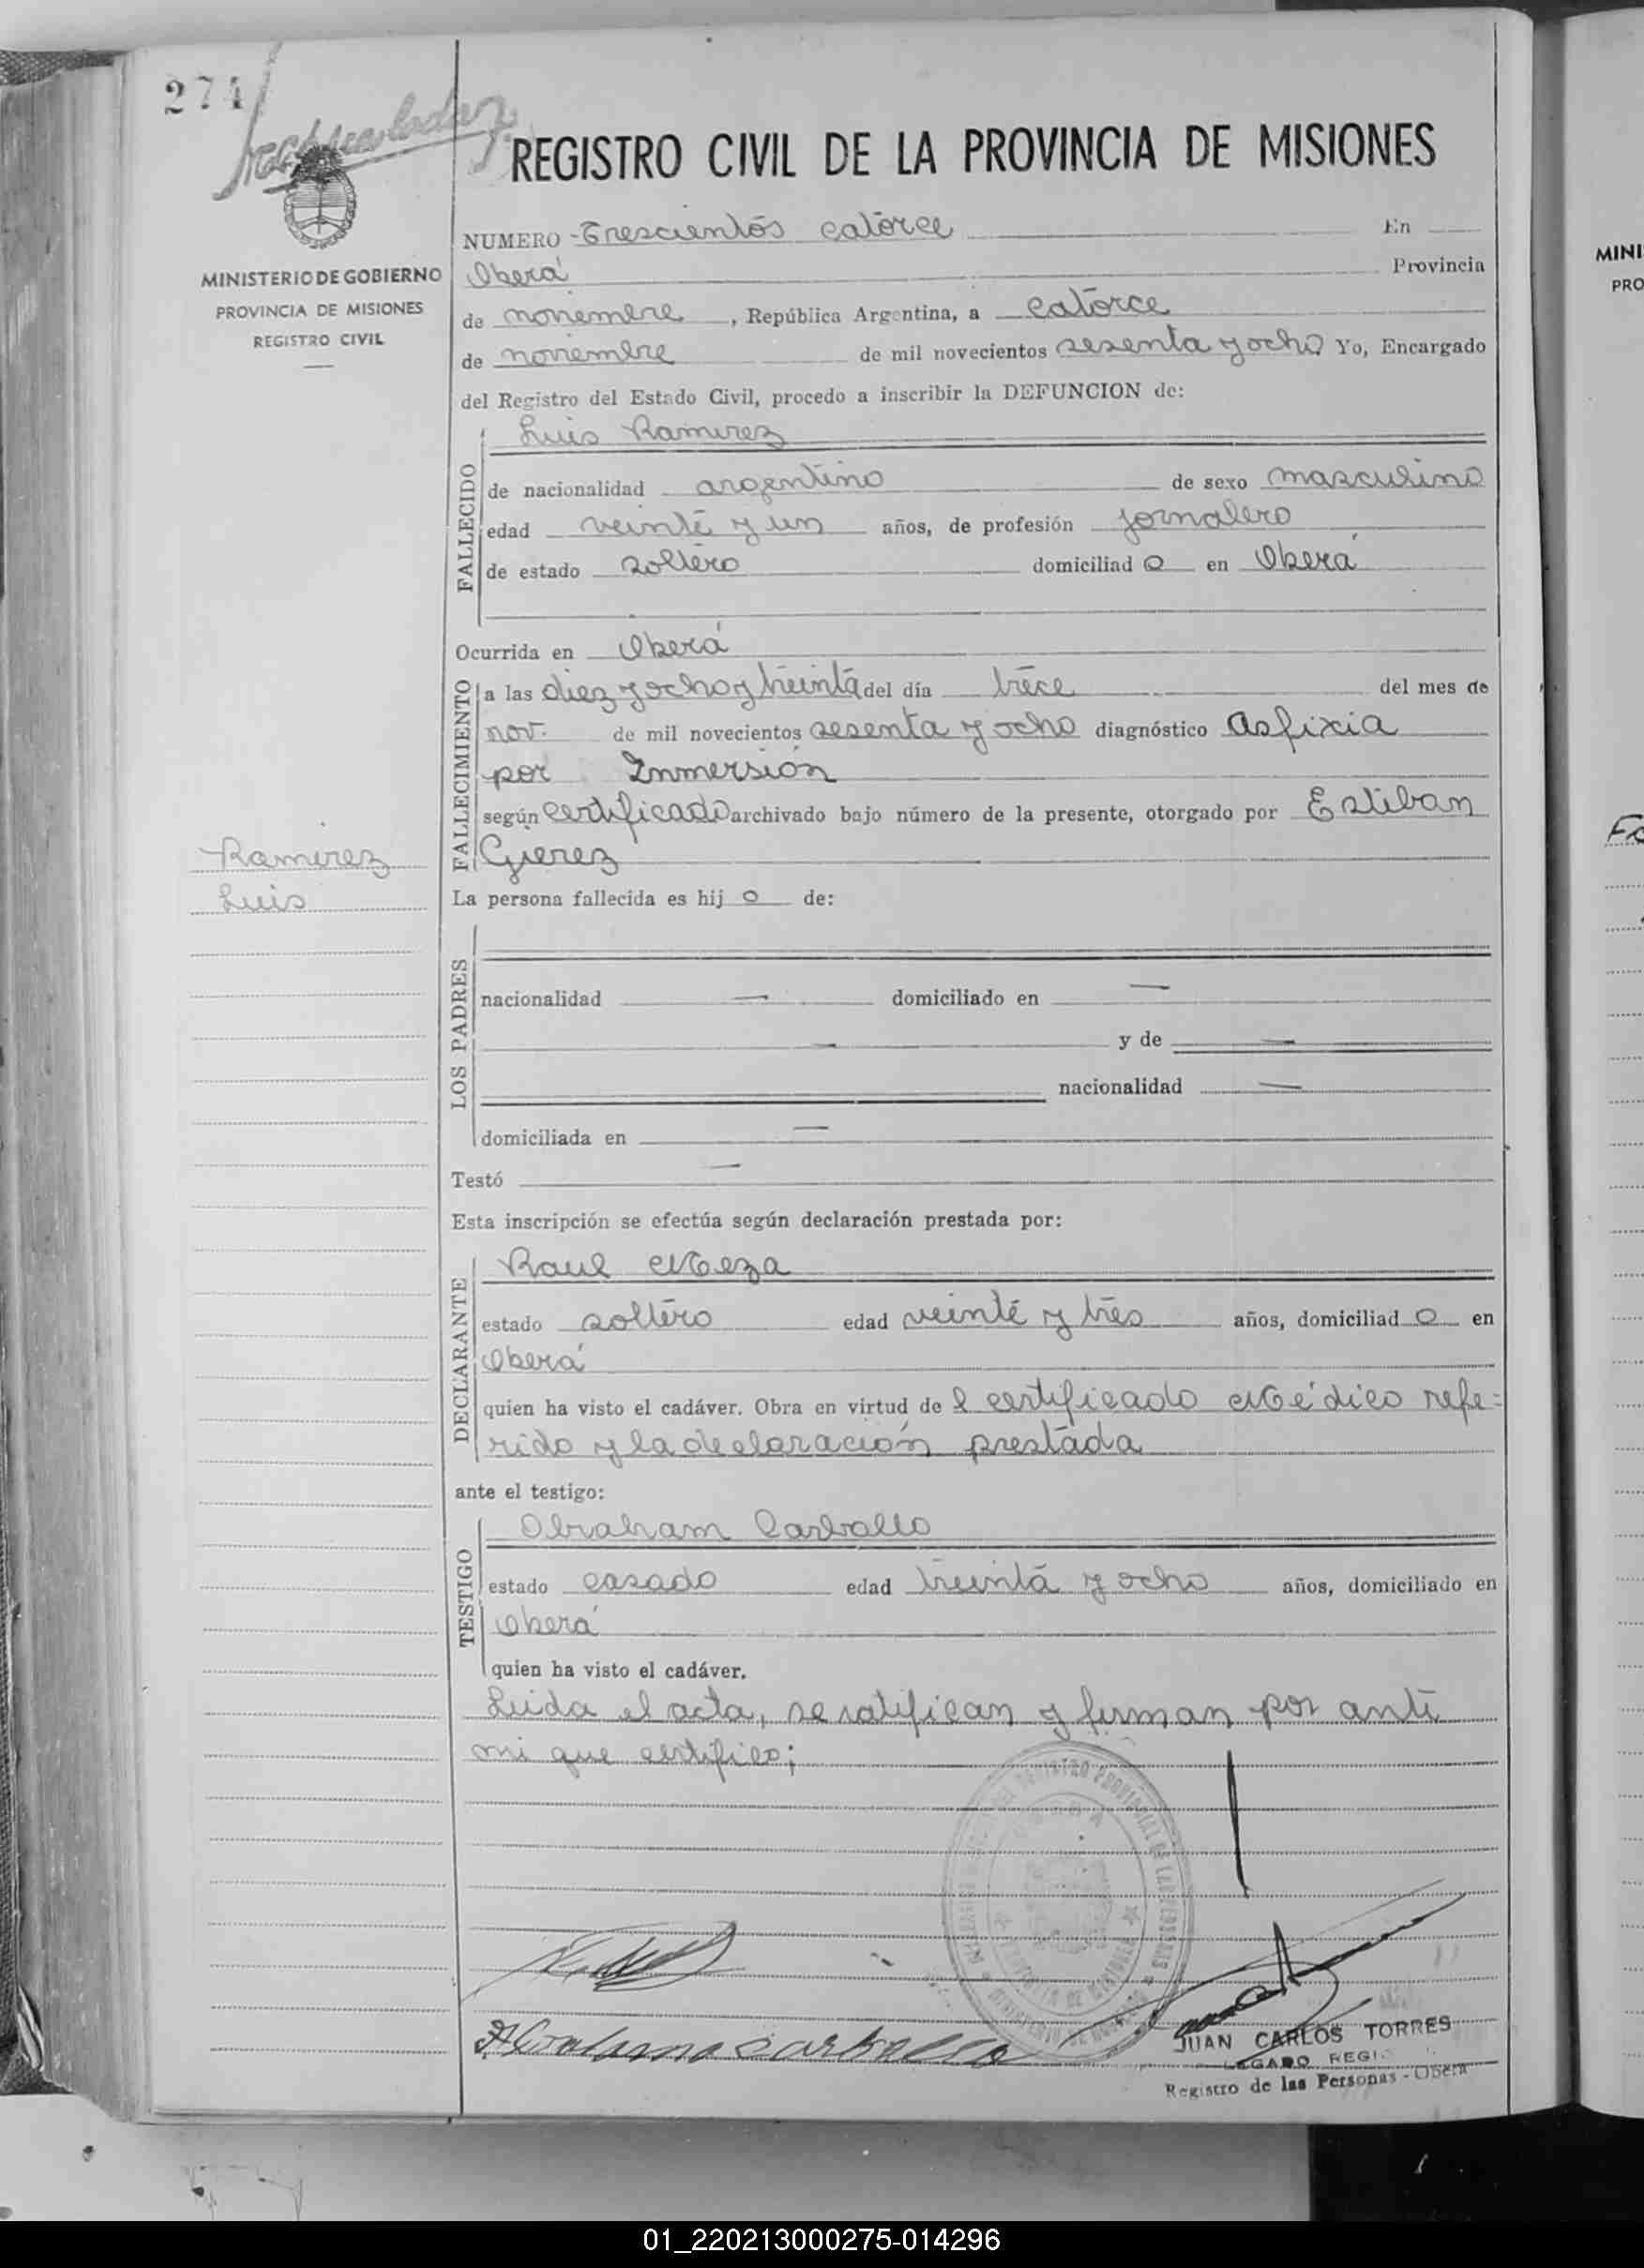 274
REGISTRO CIVIL DE LA PROVINCIA DE MISIONES
MINISTERIO DE GOBIERNO
PROVINCIA DE MISIONES
REGISTRO CIVIL
NUMERO Trescientos catorce En
Oberá Provincia
de noviembre, República Argentina, a catorce
de noviembre de mil novecientos sesenta y ocho Yo, Encargado
del Registro del Estado Civil, procedo a inscribir la DEFUNCION de:
FALLECIDO
Luis Ramirez
de nacionalidad argentino de sexo masculino
edad veinte y un años, de profesión jornalero
de estado soltero domiciliad o en Oberá
Ocurrida en Oberá
FALLECIMIENTO
a las diez y ocho y treinta del día trece del mes de
nov. de mil novecientos sesenta y ocho diagnóstico Asfixia
por Inmersión
según certificado archivado bajo número de la presente, otorgado por Esteban
Gierez
Ramirez
Luis
La persona fallecida es hij o de:
LOS PADRES
nacionalidad — domiciliado en —
— y de —
nacionalidad —
domiciliada en —
Testó —
Esta inscripción se efectúa según declaración prestada por:
DECLARANTE
Raul Meza
estado soltero edad veinte y tres años, domiciliad o en
Oberá
quien ha visto el cadáver. Obra en virtud de l certificado Médico refe-
rido y la declaración prestada
ante el testigo:
TESTIGO
Abraham Carballo
estado casado edad treinta y ocho años, domiciliado en
Oberá
quien ha visto el cadáver.
Leida el acta, se ratifican y firman por ante
mi que certifico;
JUAN CARLOS TORRES
Registro de las Personas - Oberá
MINI
PRO
01_220213000275-014296